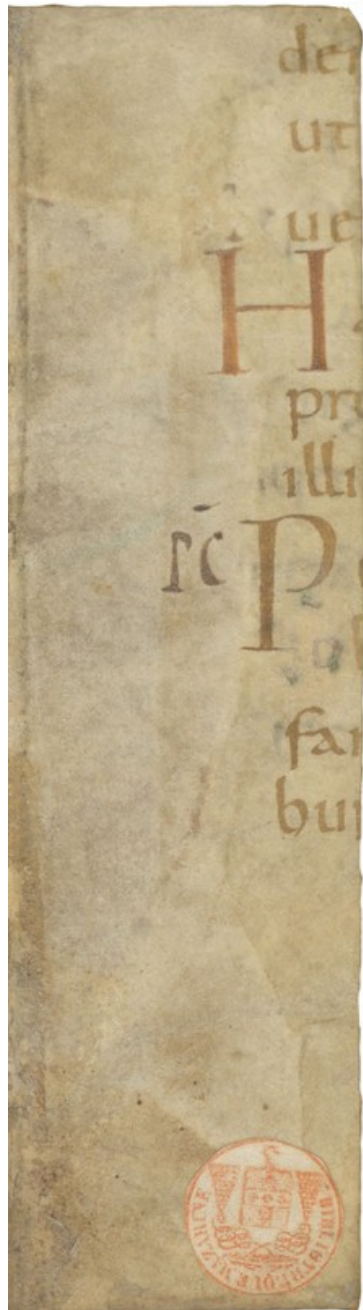 der
ut
ue
H
pre
illi
sc̄ P
fan
bui
BIBLIOTHEQUE MAZARINE